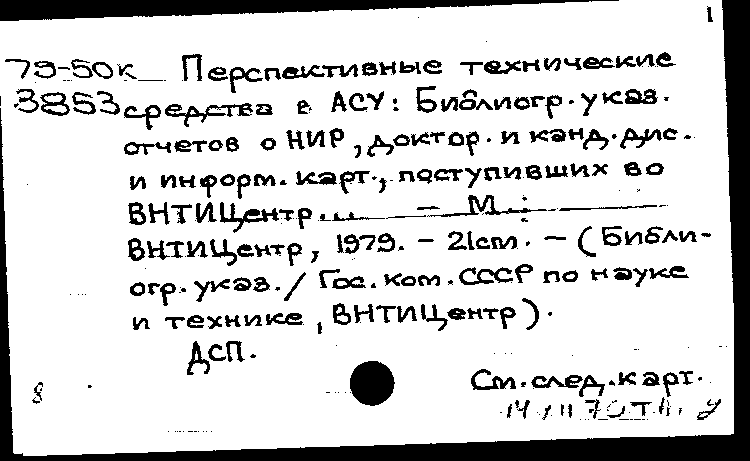 1
79-50к Перспективные технические
3853 средства в АСУ: Библиогр. указ.
отчетов о НИР, доктор. и канд. дис.
и информ. карт., поступивших во
ВНТИЦентр... – М.:
ВНТИЦентр, 1979. – 21см. – (Библи-
огр. указ. / Гос. ком. СССР по науке
и технике, ВНТИЦентр).
ДСП.
8
См. след. карт.